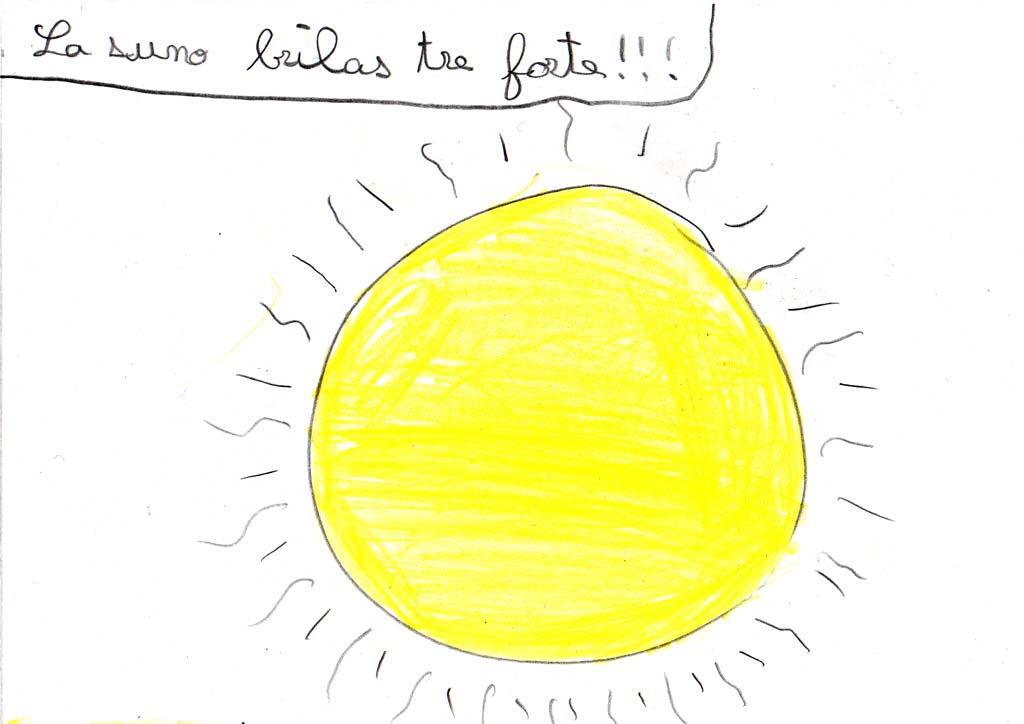 La suno brilas tre forte!!!